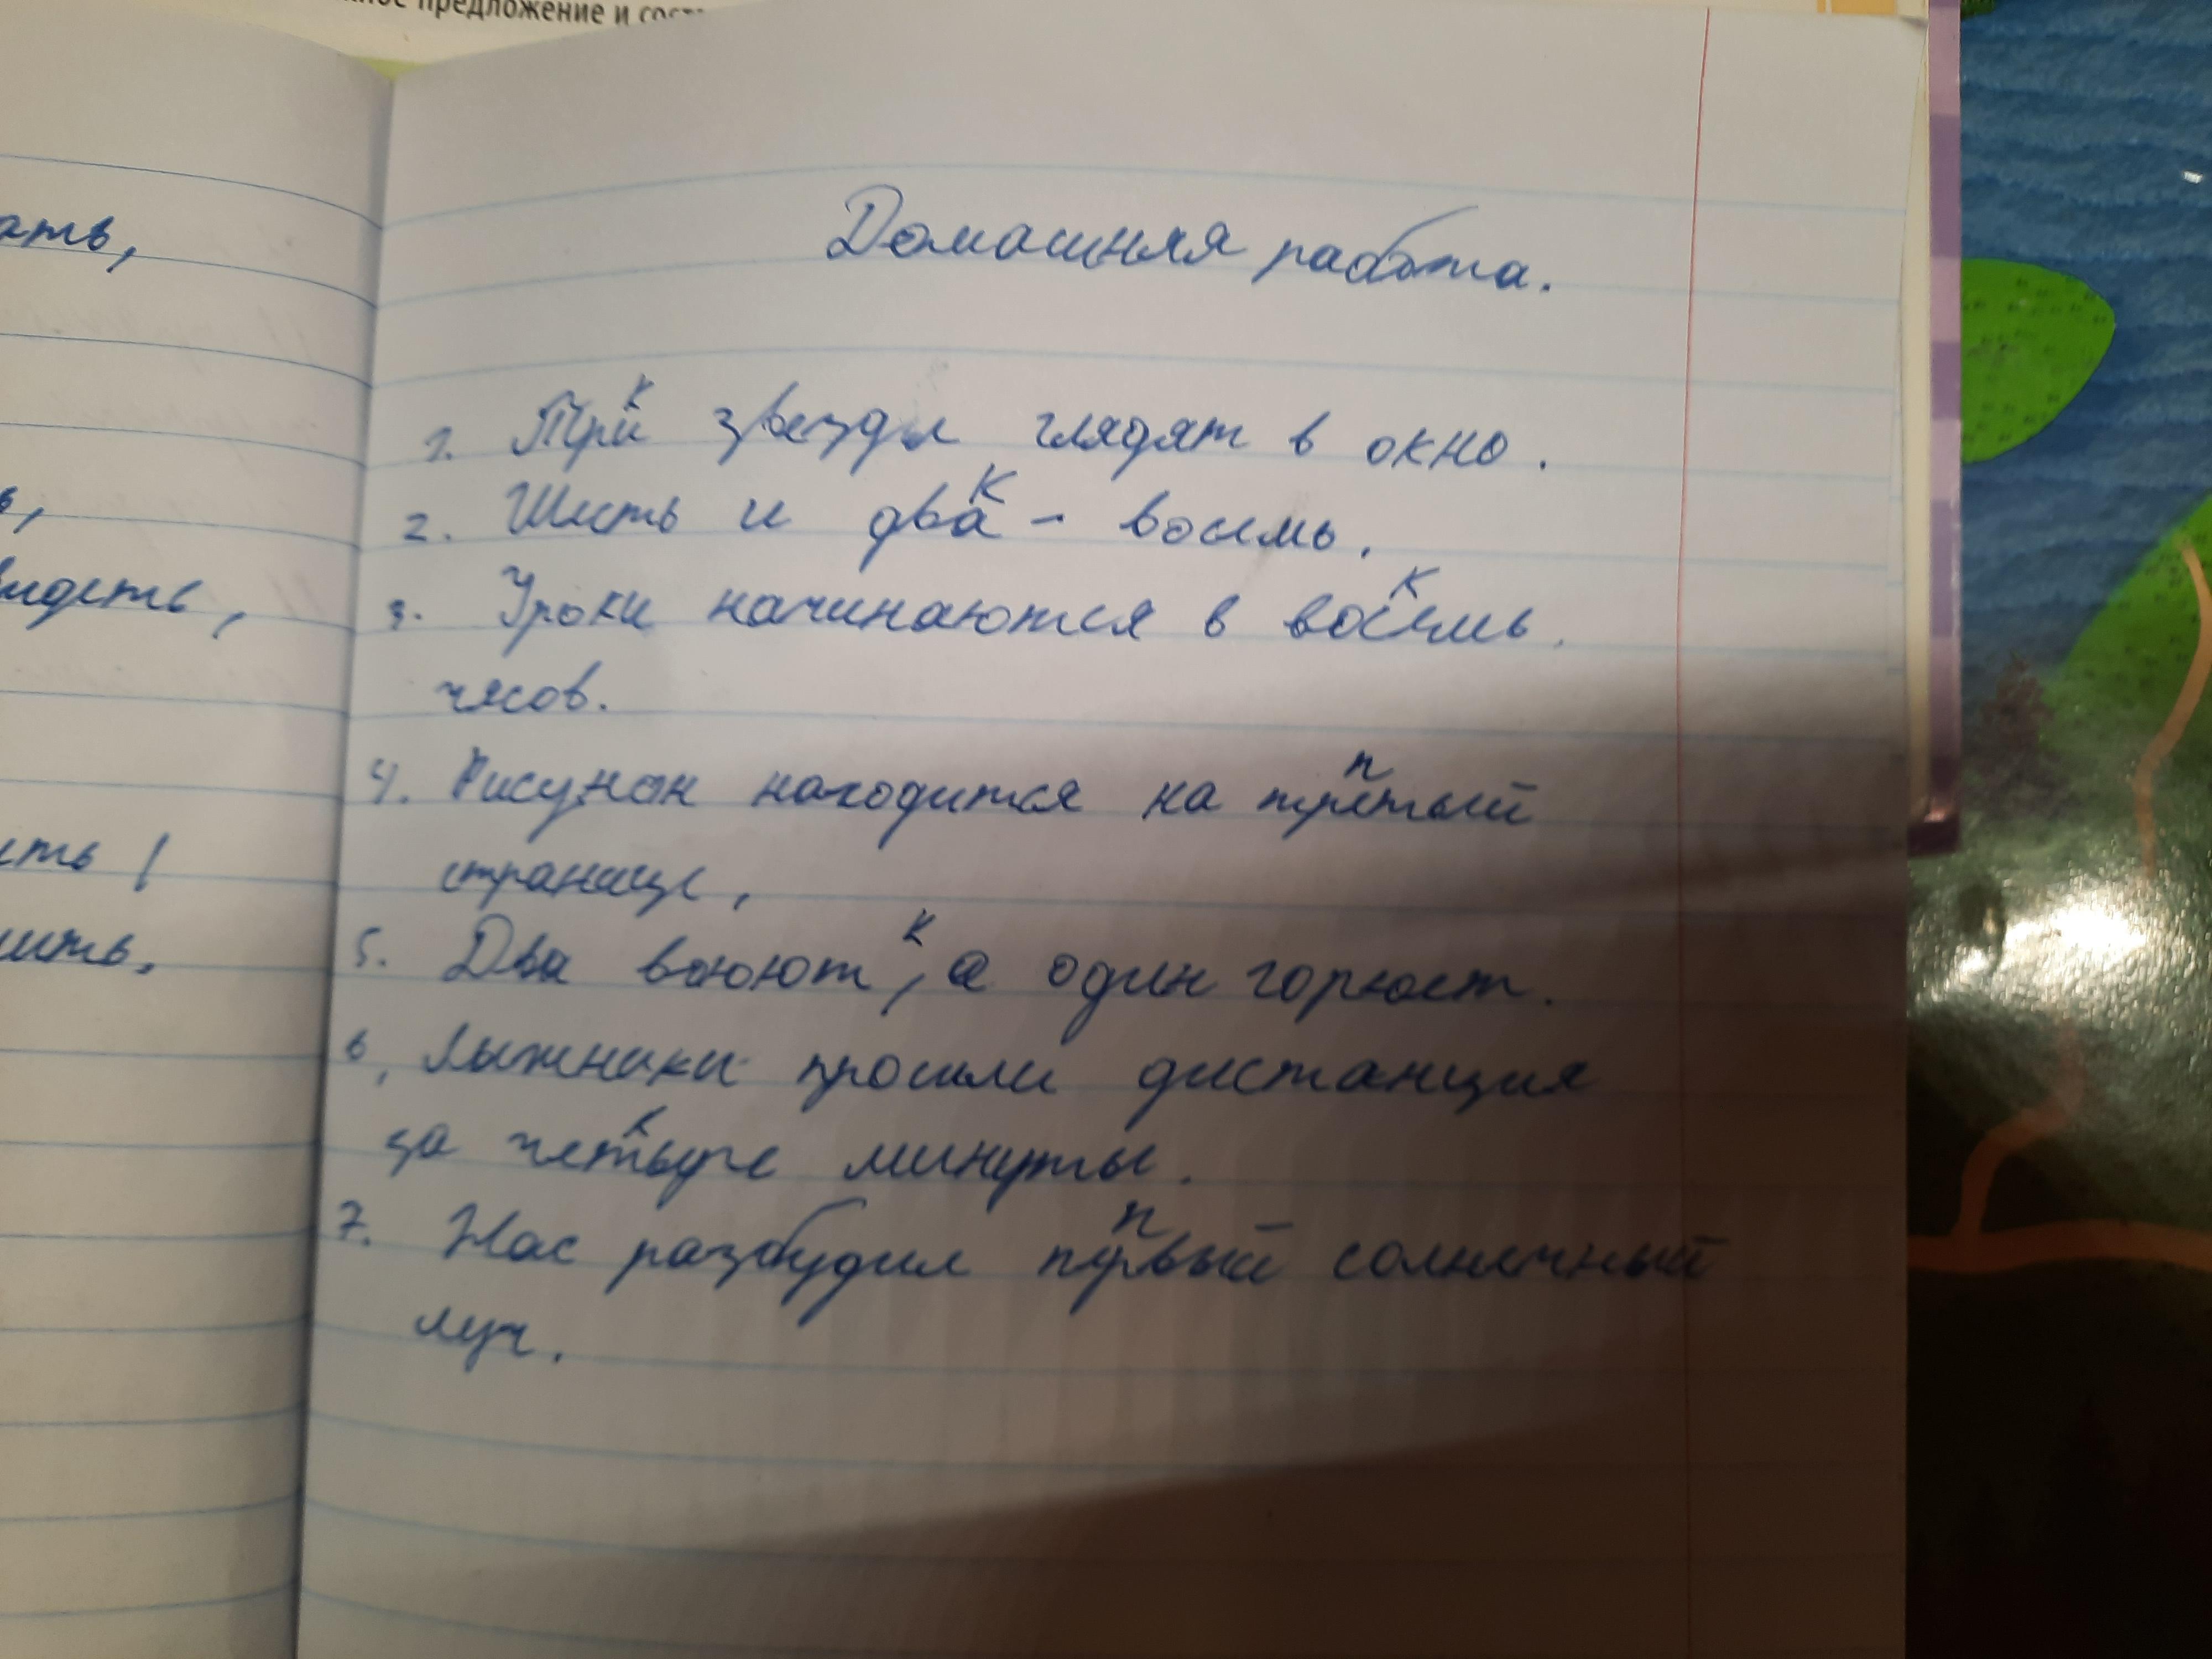 предложение и сост
ать,
ь,
видеть,
ить,
Домашняя работа.
к
1. Три звезды глядят в окно.
к
2. Шесть и два - восемь.
к
3. Уроки начинаются в восемь.
часов.
п
4. Рисунок находится на третый
странице,
к
5. Два воюют, а один горюет.
6, Лыжники прошли дистанция
к
за четыре минуты.
п
7. Нас разбудил первый солнечный
луч.